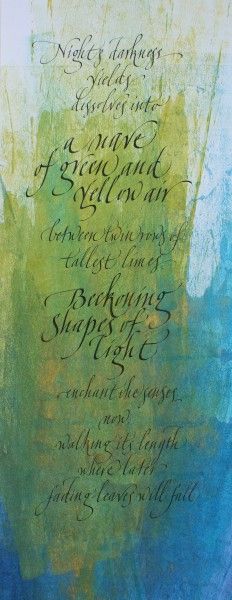 Night's darkness
yields
dissolves into
a nave
of green and
yellow air
between twin rows of
tallest limes.
Beckoning
shapes of
light
enchant the senses
now
walking its length
where later
fading leaves will fall